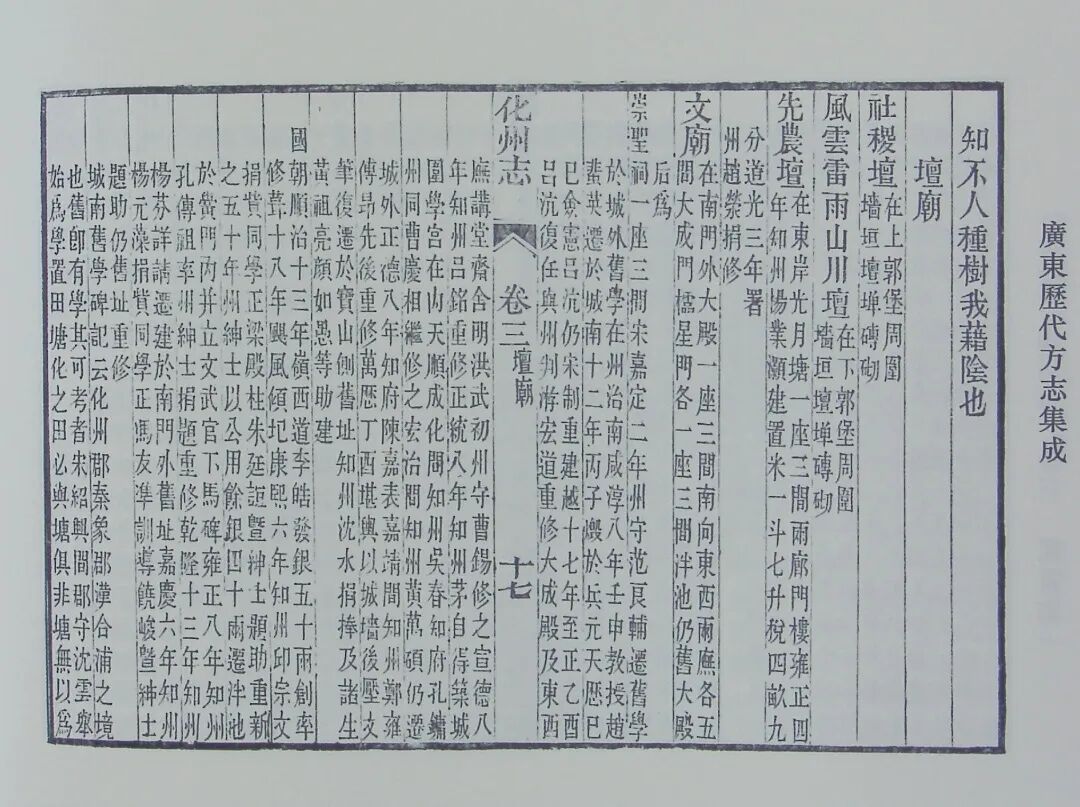 廣東歷代方志集成
知不人種樹我藉陰也
壇廟
社稷壇在上郭堡周圍
墙垣壇墠磚砌
風雲雷雨山川壇在下郭堡周圍
墻垣壇墠磚砌
先農壇在東岸光月塘一座三間兩廊門樓雍正四
年知州楊業灝建置米一斗七升稅四畝九
分道光三年署
州趙榮捐修
文廟在南門外大殿一座三間南向東西兩廡各五
間大成門櫺星門各一座三間泮池仍舊大殿
后爲
崇聖祠一座三間宋嘉定二年州守范良輔遷舊學
於城外舊學在州治南咸淳八年壬申教授趙
蜚英遷於城南十二年丙子燬於兵元天歷己
巳僉憲呂沆仍宋制重建越十七年至正乙酉
呂沆復任與州判蔣宏道重修大成殿及東西
化州志
卷三壇廟
十七
廡講堂齋舍明洪武初州守曹錫修之宣德八
年知州呂銘重修正統八年知州茅自得築城
圍學宫在山天順成化間知州吳春知府孔鏞
州同曹慶相繼修之宏治間知州黄萬碩仍遷
城外正德八年知府陳嘉表嘉靖間知州鄭雍
傅昂先後重修萬歷丁酉堪輿以城墻後壓文
筆復遷於寶山側舊址知州沈水捐捧及諸生
黄祖亮顔如愚等助建
國朝順治十三年嶺西道李皓發銀五十兩創率
修葺十八年颶風傾圮康熙六年知州邱宗文
捐貲同學正梁殿柱朱廷誼曁紳士題助重新
之五十年州紳士以公用餘銀四十兩遷泮池
於黌門內并立文武官下馬碑雍正八年知州
孔傳祖率州紳士捐題重修乾隆十三年知州
楊芬詳請遷建於南門外舊址嘉慶六年知州
楊元藻捐貲同學正馮友準訓導饒峻曁紳士
題助仍舊址重修
城南舊學碑記云化州郡秦象郡漢合浦之境
也舊卽有學其可考者宋紹興間郡守沈雲舉
始爲學置田塘化之田必與塘俱非塘無以爲